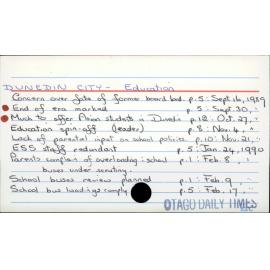 DUNEDIN CITY - Education
Concern over fate of former board bld. p.5: Sept.16, 1989
End of era marked p.5: Sept.30, "
Much to offer Asian students in Dunedin p.12: Oct.27, "
Education spin-off (leader) p.8: Nov.4, "
Lack of parental input on school policies p.10: Nov.21, "
ESS staff redundant p.5: Jan.24, 1990
Parents complain of overloading: school p.1: Feb.8, "
buses under scrutiny.
School buses review planned p.1: Feb.9, "
School bus loadings comply p.5: Feb.17, "
OTAGO DAILY TIMES